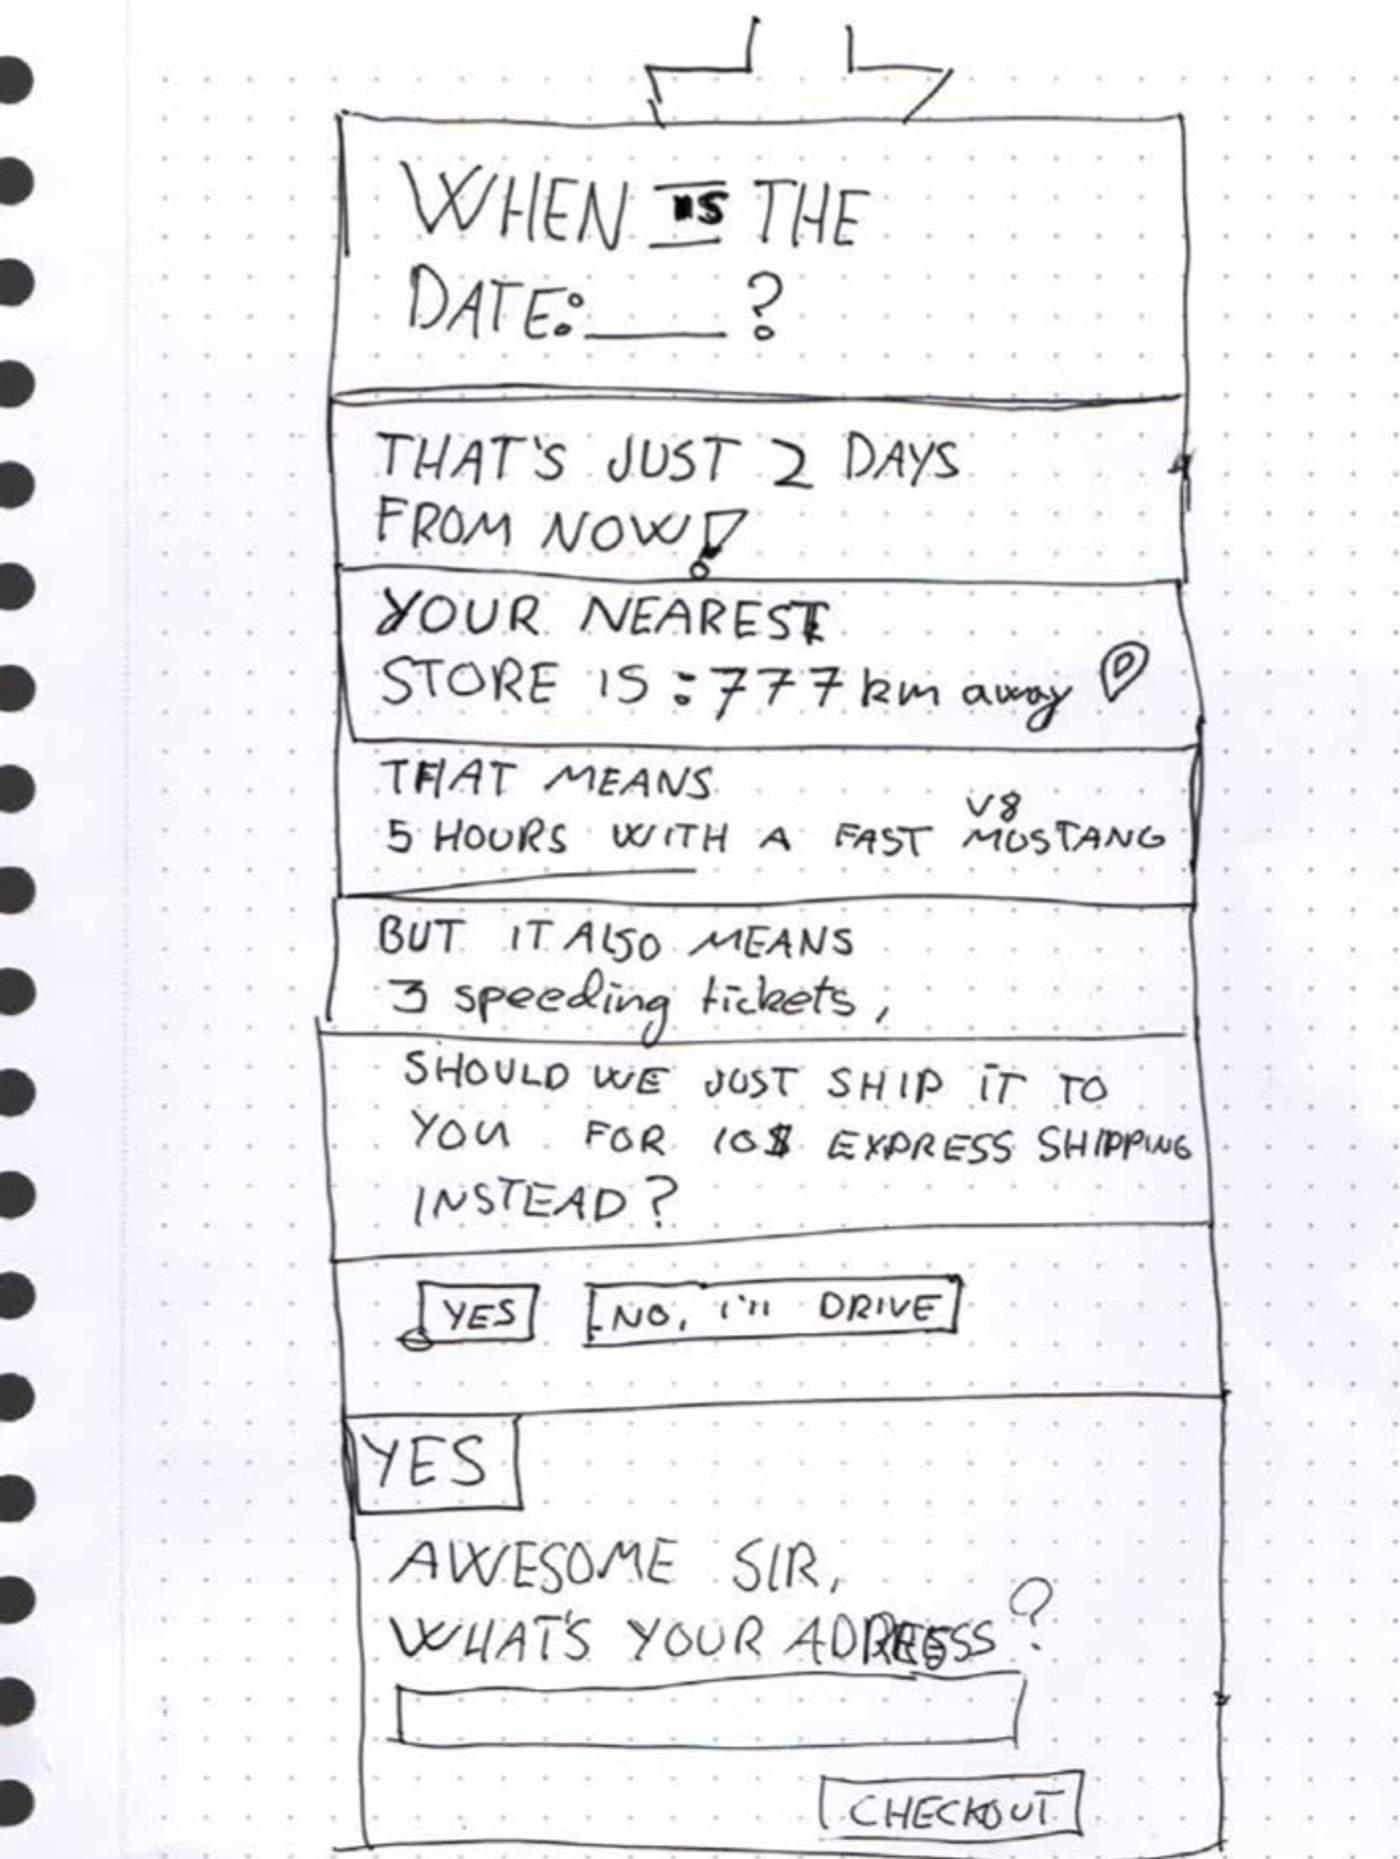 WHEN IS THE
DATE: ____ ?
THAT'S JUST 2 DAYS
FROM NOW!
YOUR NEAREST
STORE IS: 777 km away
THAT MEANS
V8
5 HOURS WITH A FAST MUSTANG
BUT IT ALSO MEANS
3 speeding tickets,
SHOULD WE JUST SHIP IT TO
YOU FOR 10$ EXPRESS SHIPPING
INSTEAD?
YES NO, I'll DRIVE
YES
AWESOME SIR,
WHAT'S YOUR ADRESS?
CHECKOUT